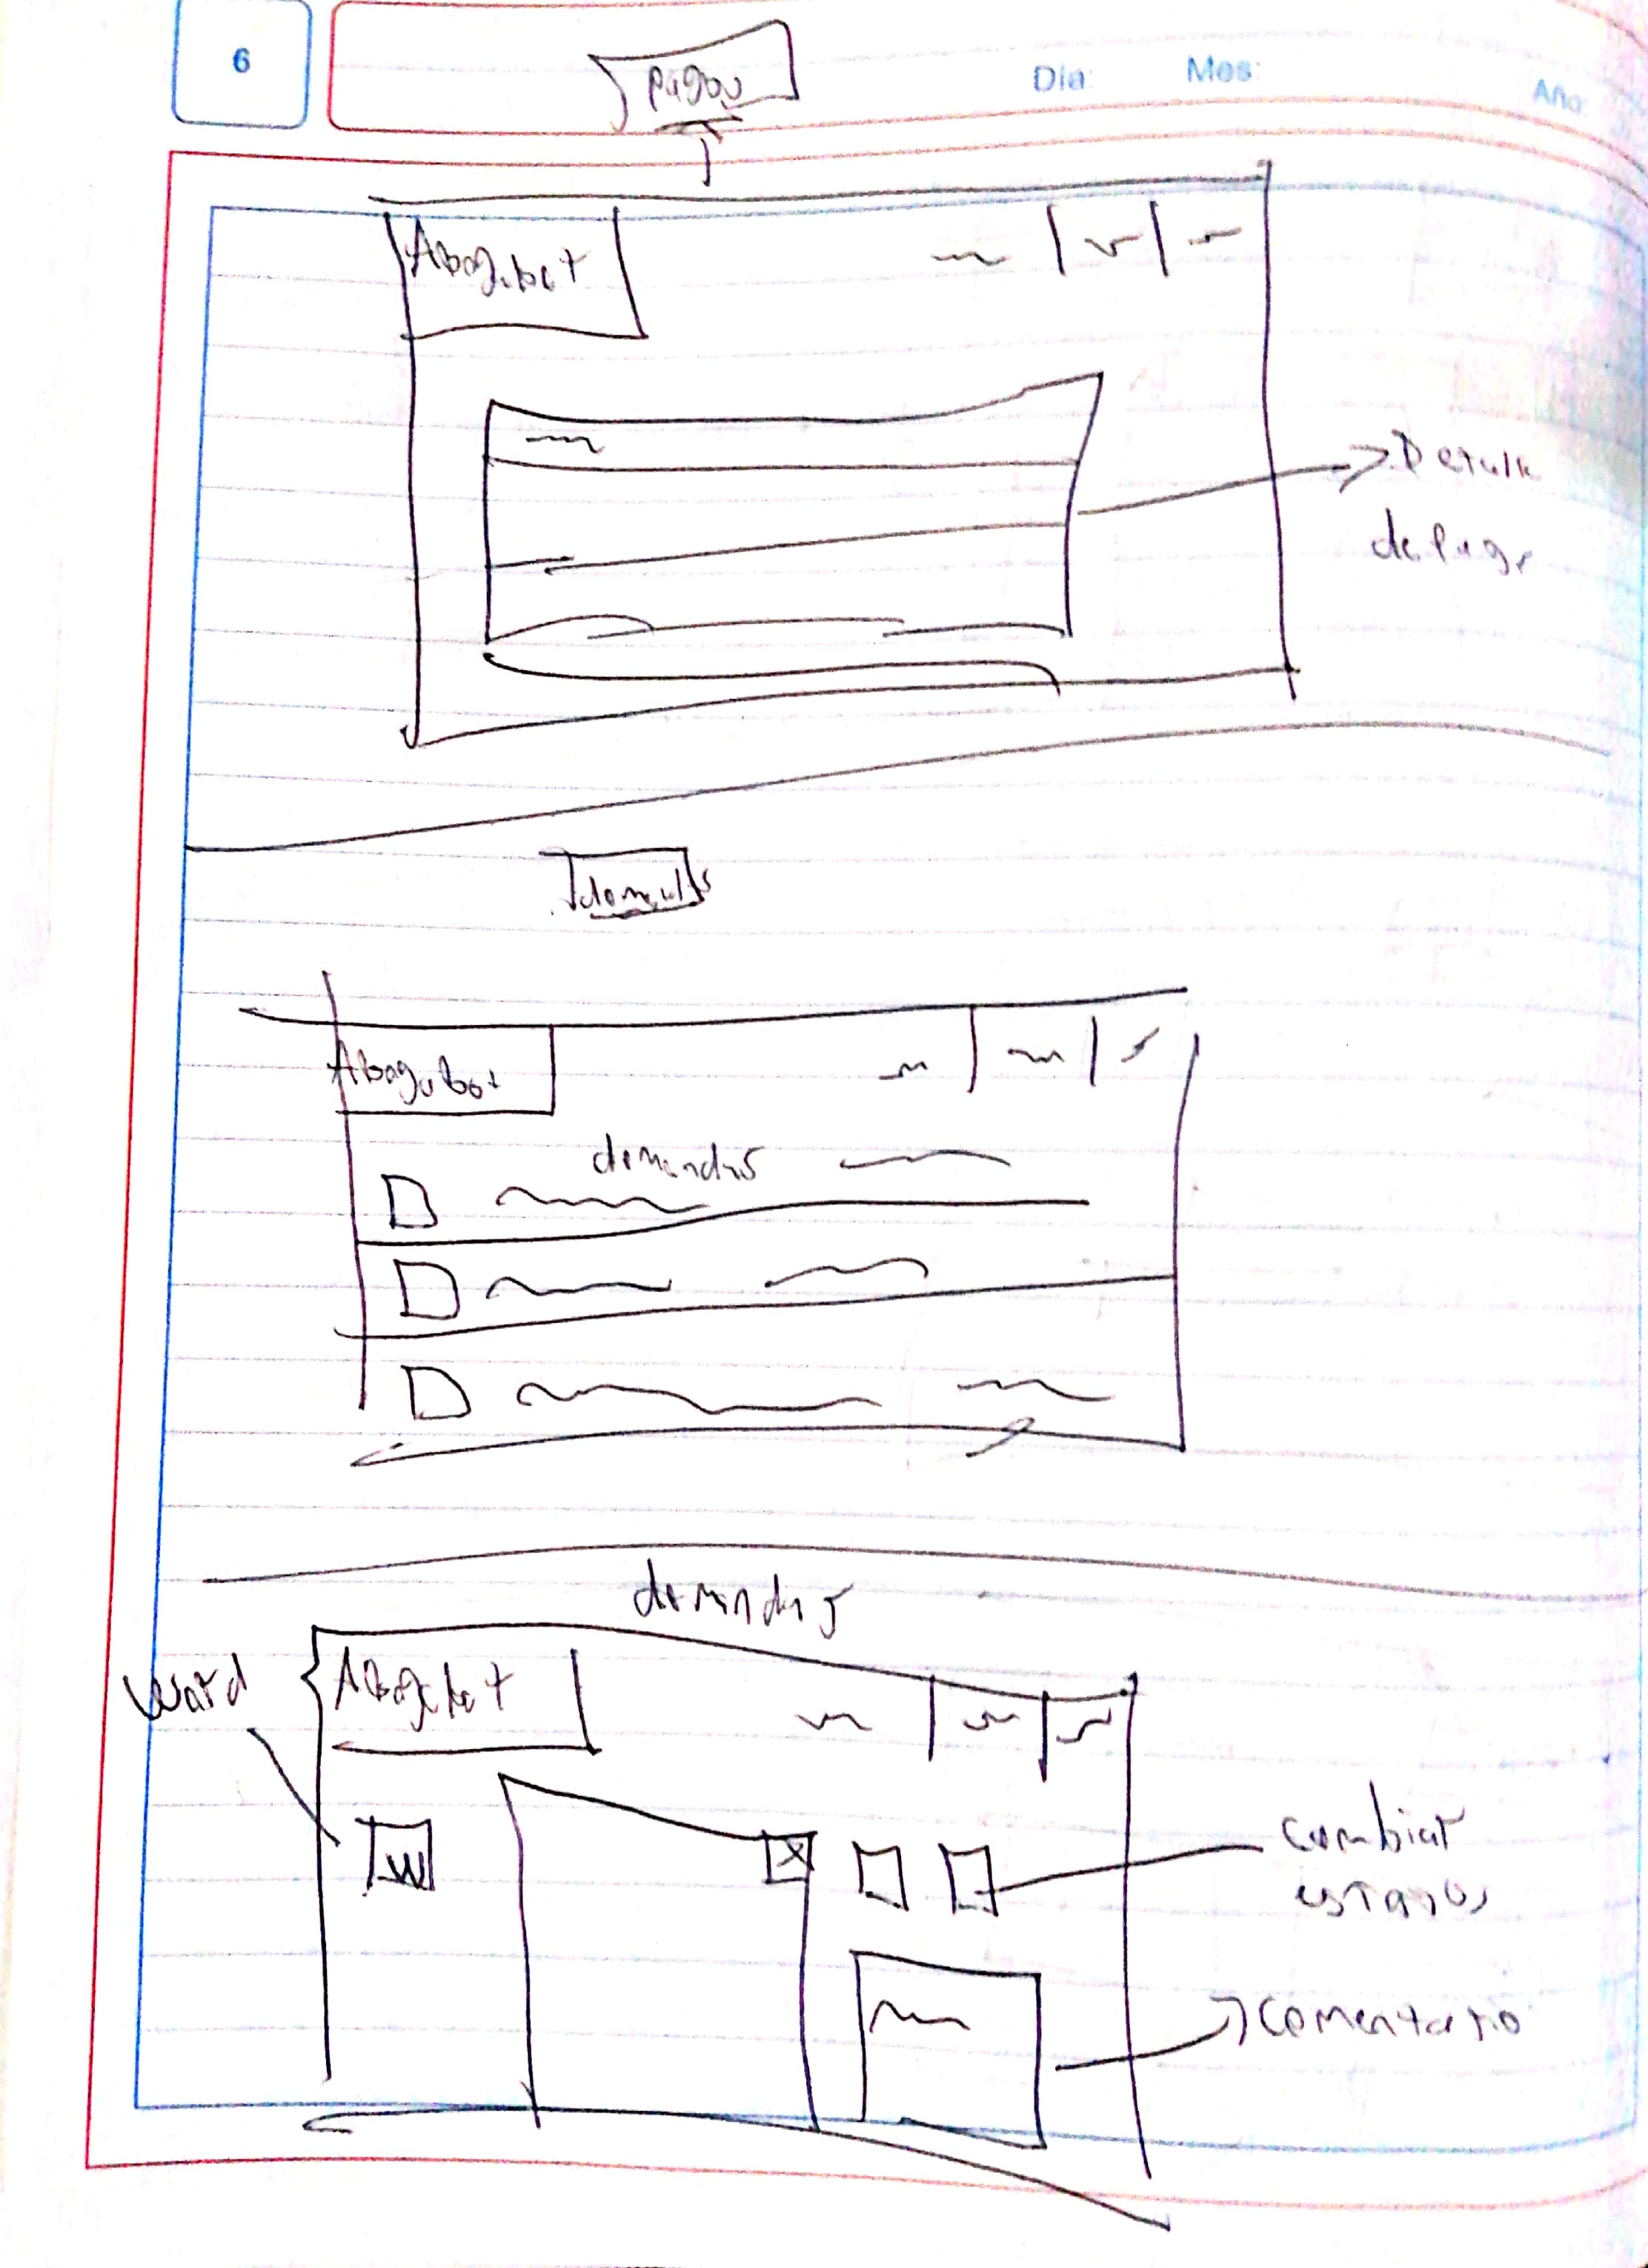 6
Pagos
Día: Mes: Año:
Abogabot
Detalle
de Pago
demandas
Abogabot
demandas
demandas
word
Abogabot
W
X
cambiar
estados
comentario